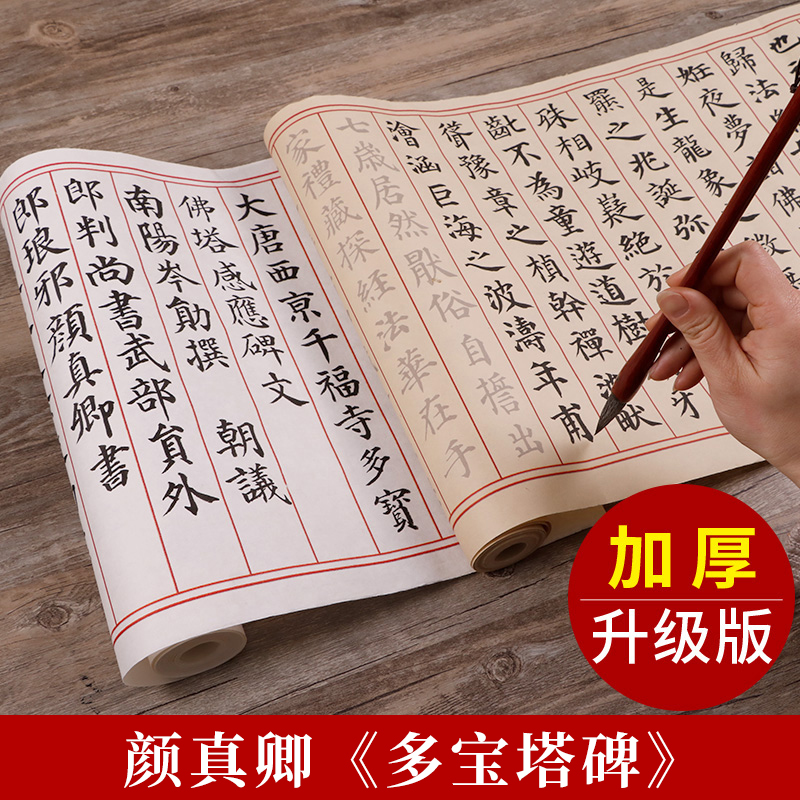 也
歸法
姙夜夢
是生龍象
羆之兆誕彌
殊相岐嶷絕於
齔不為童遊道樹
聳豫章之楨幹禪
澮涵巨海之波濤年甫
七歲居然厭俗自誓出
家禮藏探經法華在手
大唐西京千福寺多寳
佛塔感應碑文
南陽岑勛撰 朝議
郎判尚書武部貟外
郎琅邪顔真卿書
加厚
升级版
颜真卿《多宝塔碑》